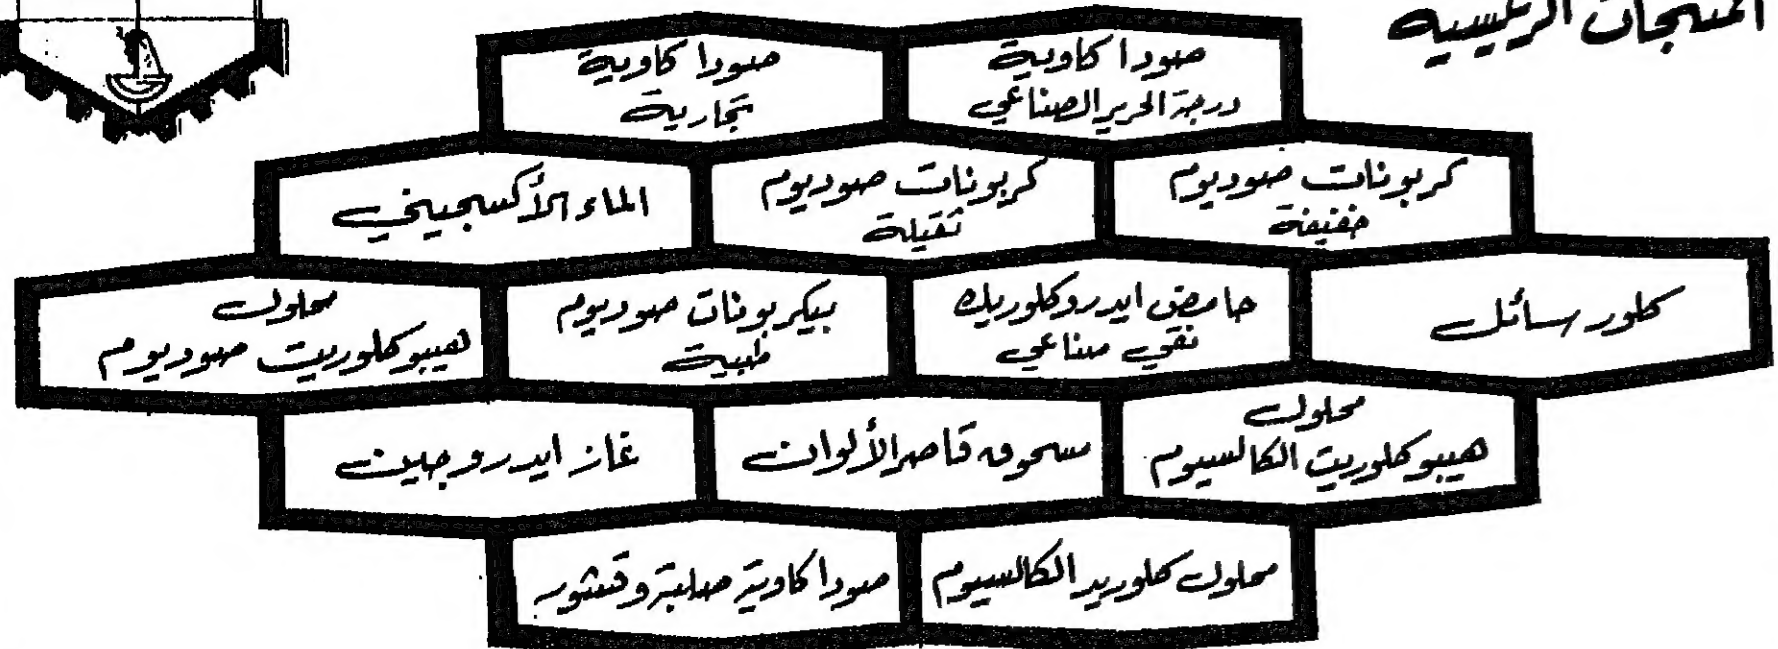 المنتجات الرئيسية
صودا كاوية
درجة الحرير الصناعي
صودا كاوية
تجارية
كربونات صوديوم
خفيفة
كربونات صوديوم
ثقيلة
الماء الأكسجيني
كلور سائل
حامض ايدروكلوريك
نقي صناعي
بيكربونات صوديوم
طبية
محلول
هيبوكلوريت صوديوم
محلول
هيبوكلوريت الكالسيوم
مسحوق قاصر الألوان
غاز ايدروجين
محلول كلوريد الكالسيوم
صودا كاوية صلبة وقشور